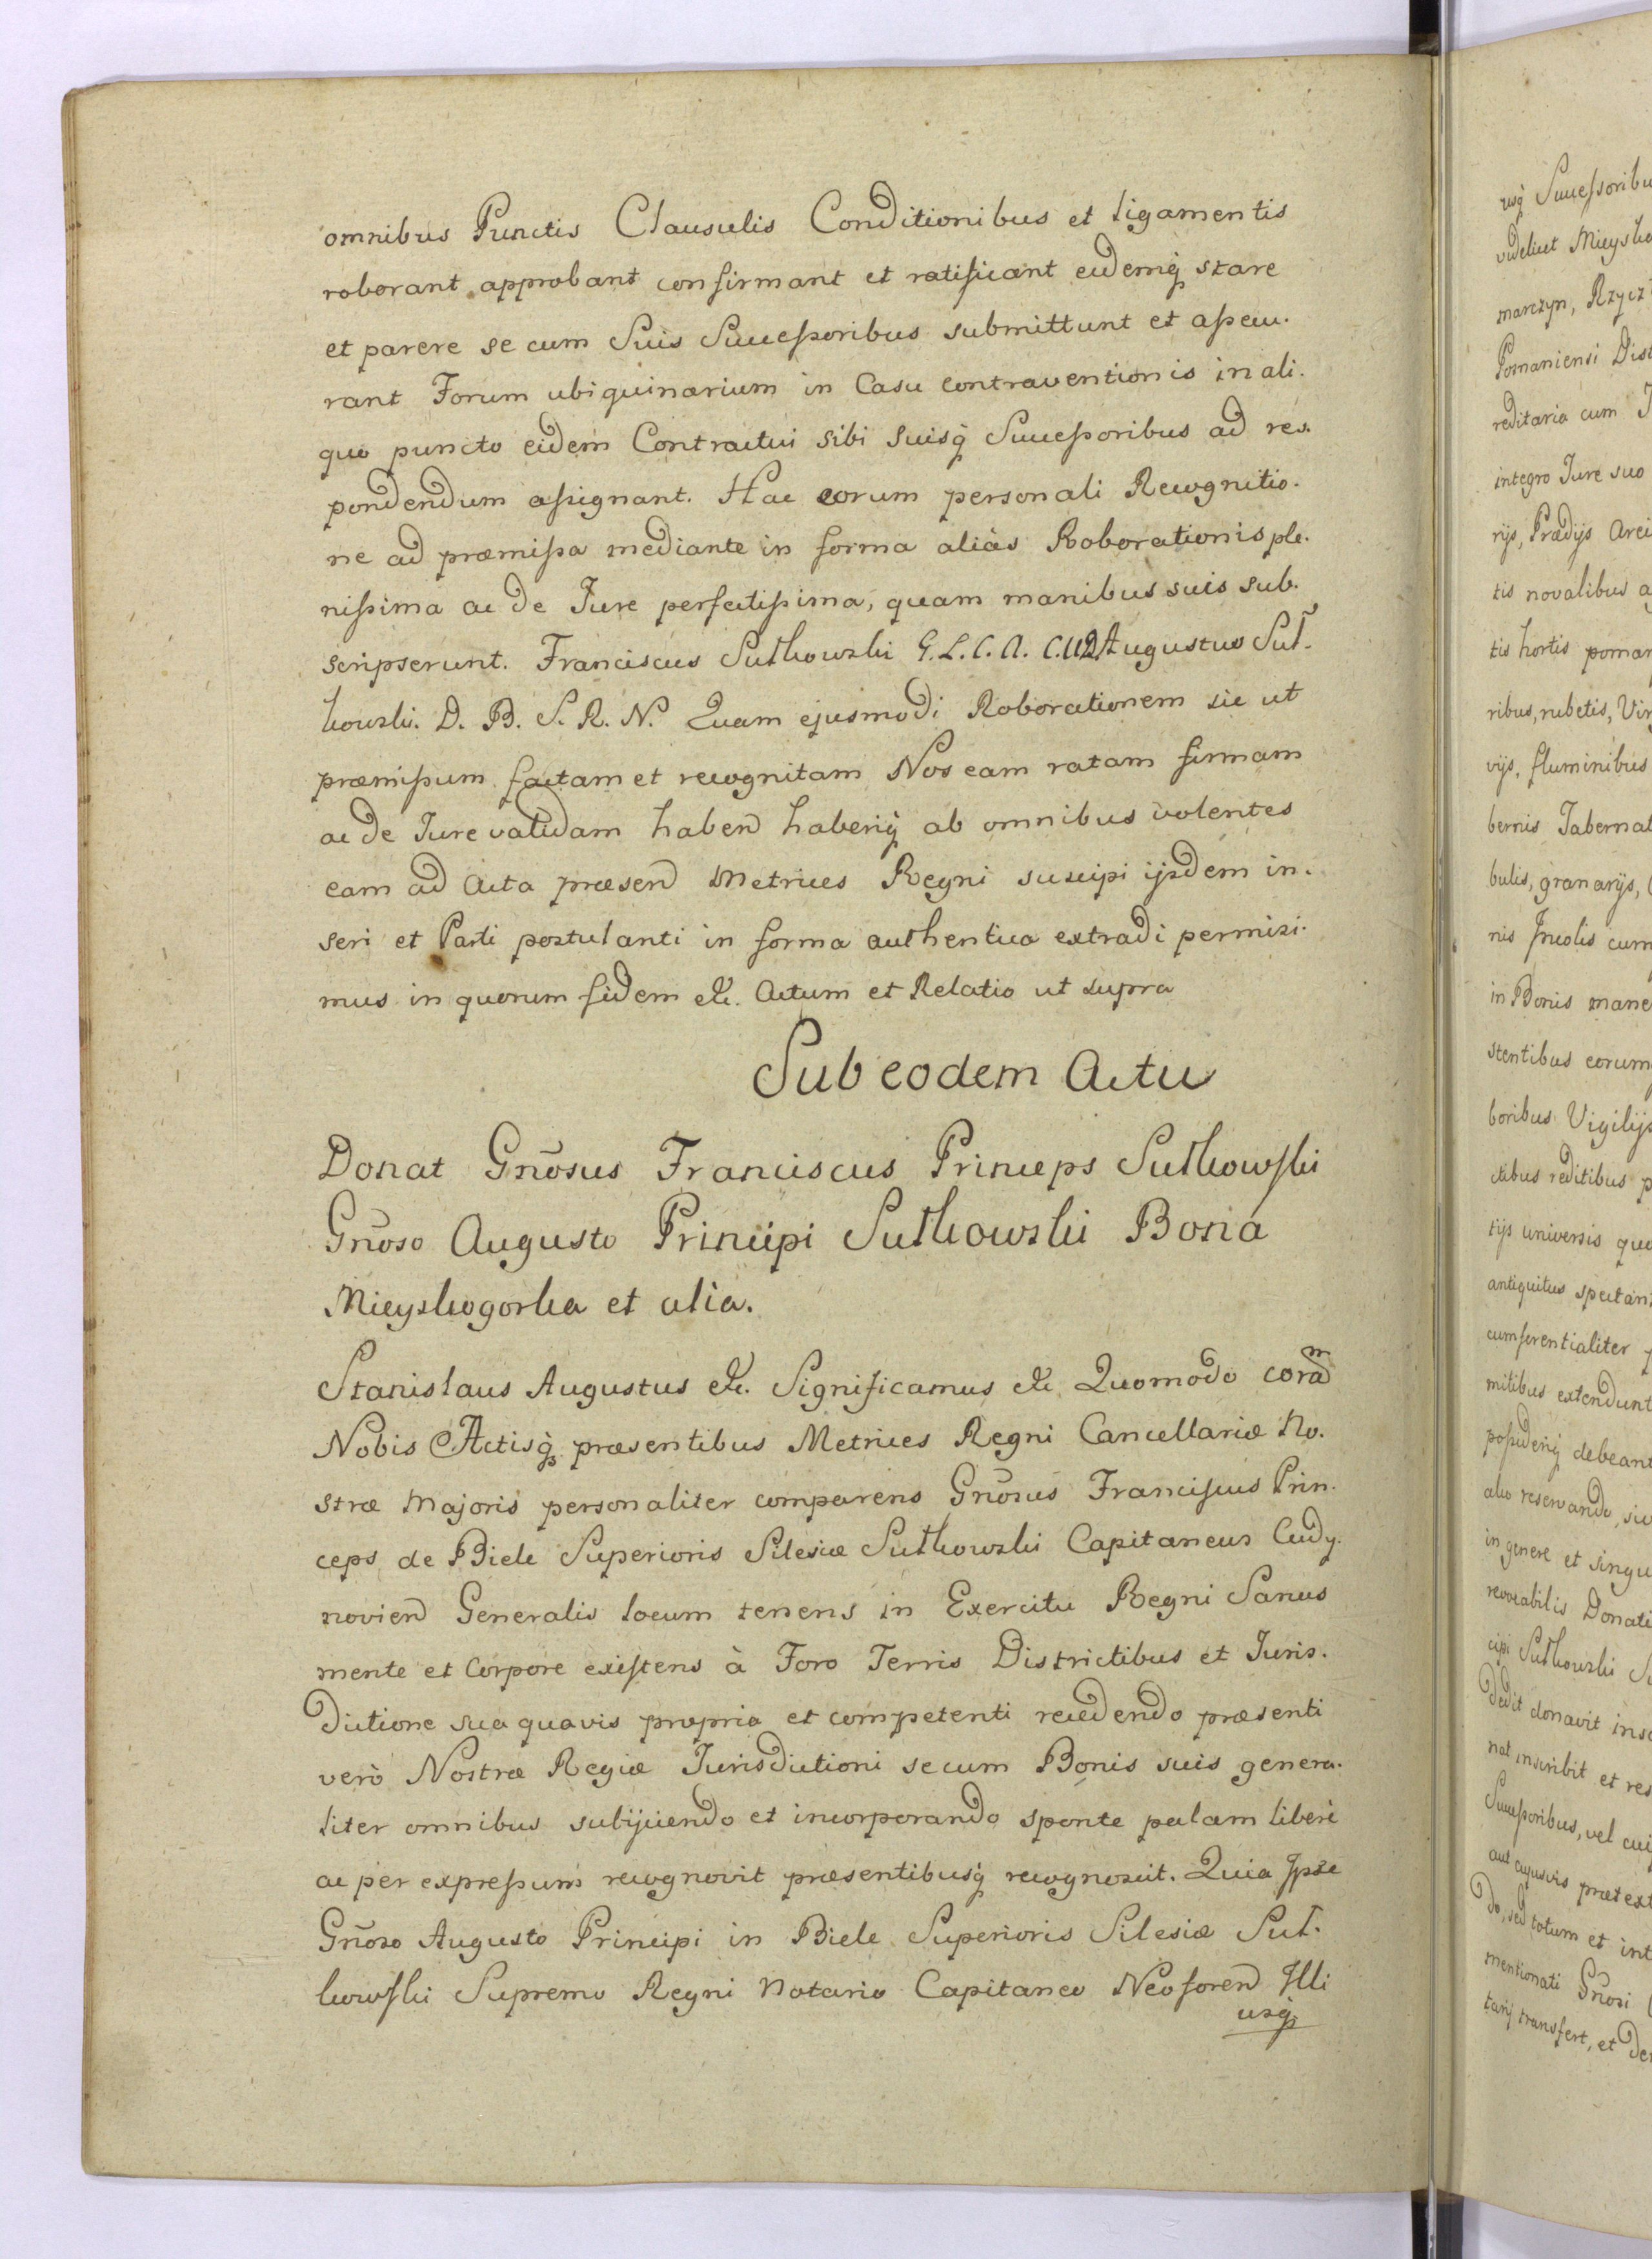 omnibus Punctis Clausulis Conditionibus et ligamentis
roborant approbant confirmant et ratificant eidemq́ stare
et parere se cum Suis Successoribus submittunt et assecu-
rant Forum ubiquinarium in Casu contraventionis in ali-
quo puncto eidem Contractui sibi suisq́ Successoribus ad res-
pondendum assignant. Hac eorum personali Recognitio-
ne ad præmissa mediante in forma aliàs Roborationis ple-
nissima ac de Jure perfectissima, quam manibus suis sub-
scripserunt. Franciscus Sułkowski G. L. C. A. Augustus Suł-
kowski. D. B. S. R. N. Quam ejusmodi Roborationem sic ut
præmissum factam et recognitam Nos eam ratam firmam
ac de Jure validam haben haberiq́ ab omnibus volentes
eam ad Acta præsen Metrices Regni suscipi ijsdem in-
seri et Parti postulanti in forma authentica extradi permisi-
mus in quorum fidem etc. Actum et Relatio ut supra
Sub eodem Actu
Donat Gnōsus Franciscus Princeps Sułkowski
Gnōso Augusto Principi Sułkowski Bona
Mieyskogorka et alia.
Stanislaus Augustus etc. Significamus etc. Quomodo coram
Nobis Actisq́ præsentibus Metrices Regni Cancellariæ No-
stræ Majoris personaliter comparens Gnōsus Franciscus Prin-
ceps de Biele Superioris Silesiæ Sułkowski Capitaneus Cudy-
novien Generalis locum tenens in Exercitu Regni Sanus
mente et Corpore existens à Foro Terris Districtibus et Juris-
dictione sua quavis propria et competenti recedendo præsenti
verò Nostræ Regiæ Jurisdictioni se cum Bonis suis genera-
liter omnibus subijciendo et incorporando sponte palam liberè
ac per expressum recognovit præsentibusq́ recognoscit. Quia Ipse
Gnōso Augusto Principi in Biele Superioris Silesiæ Suł-
kowski Supremo Regni Notario Capitaneo Neoforen Illi
usq́
usq́ Successoribu
videlicet Mieysko
marczyn, Rzycz
Posnaniensi Dist
reditaria cum
integro Jure suo
rijs, Prædijs Arei
tis novalibus a
tis hortis pomar
ribus, rubetis, Vir
vijs, fluminibus
bernis Tabernat
bulis, granarijs,
nis Incolis cum
in Bonis mane
stentibus eorum
boribus Vigilijs
ctibus reditibus p
tijs universis que
antiquitus spectan
cumferentialiter
mitibus extendunt
possideriq́ debeant
alio reservando, sic
in genere et singu
revocabilis Donati
cipi Sułkowski
dedit donavit insc
nat inscribit et res
Successoribus, vel cui
aut cujusvis prætext
do, sed totum et int
mentionati Gnōsi
tarij transfert, et